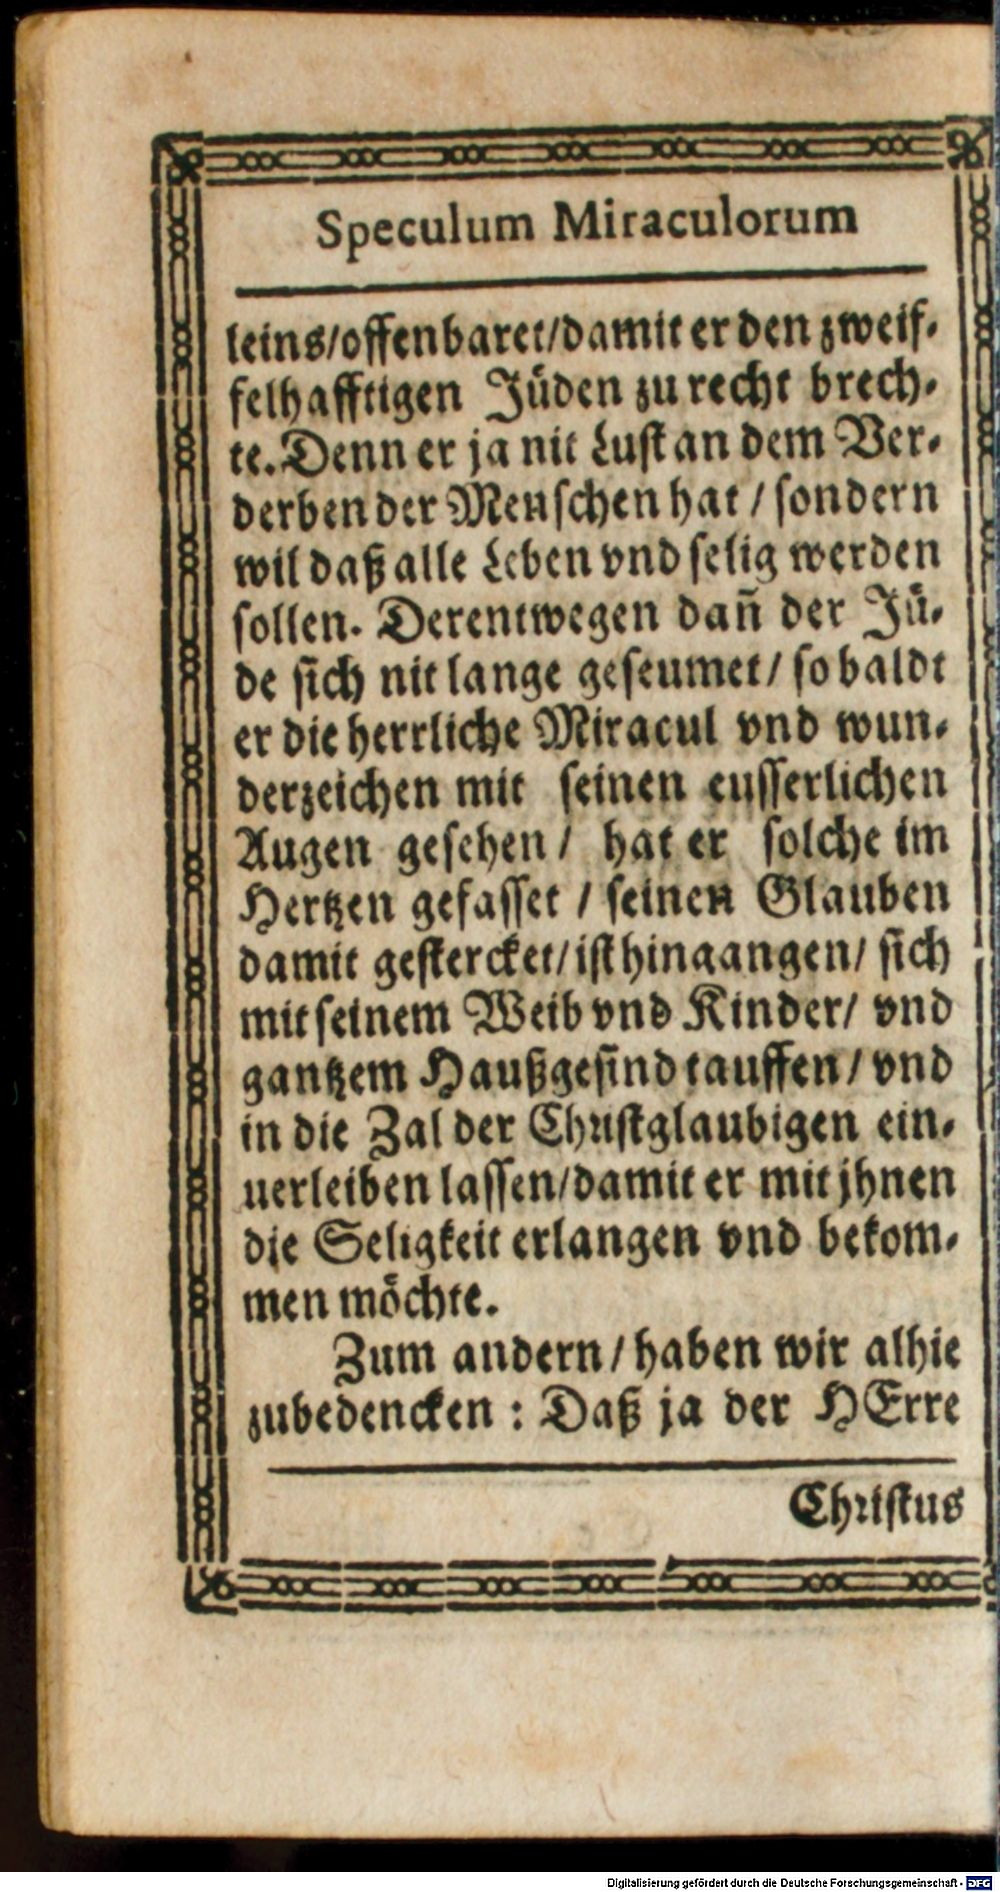 Speculum Miraculorum
leins/offenbaret/damit er den zweif-
felhafftigen Jüden zu recht brech-
te. Denn er ja nit Lust an dem Ver-
derben der Menschen hat / sondern
wil daß alle Leben vnd selig werden
sollen. Derentwegen dañ der Jü-
de sich nit lange geseumet/ so baldt
er die herrliche Miracul vnd wun-
derzeichen mit seinen eusserlichen
Augen gesehen / hat er solche im
Hertzen gefasset / seinen Glauben
damit gestercket/ist hingangen/ sich
mit seinem Weib vnd Kinder/ vnd
gantzem Haußgesind tauffen/ vnd
in die Zal der Christglaubigen ein-
uerleiben lassen/damit er mit jhnen
die Seligkeit erlangen vnd bekom-
men möchte.
Zum andern/ haben wir alhie
zubedencken : Daß ja der HErre
Christus
Digitalisierung gefördert durch die Deutsche Forschungsgemeinschaft - DFG